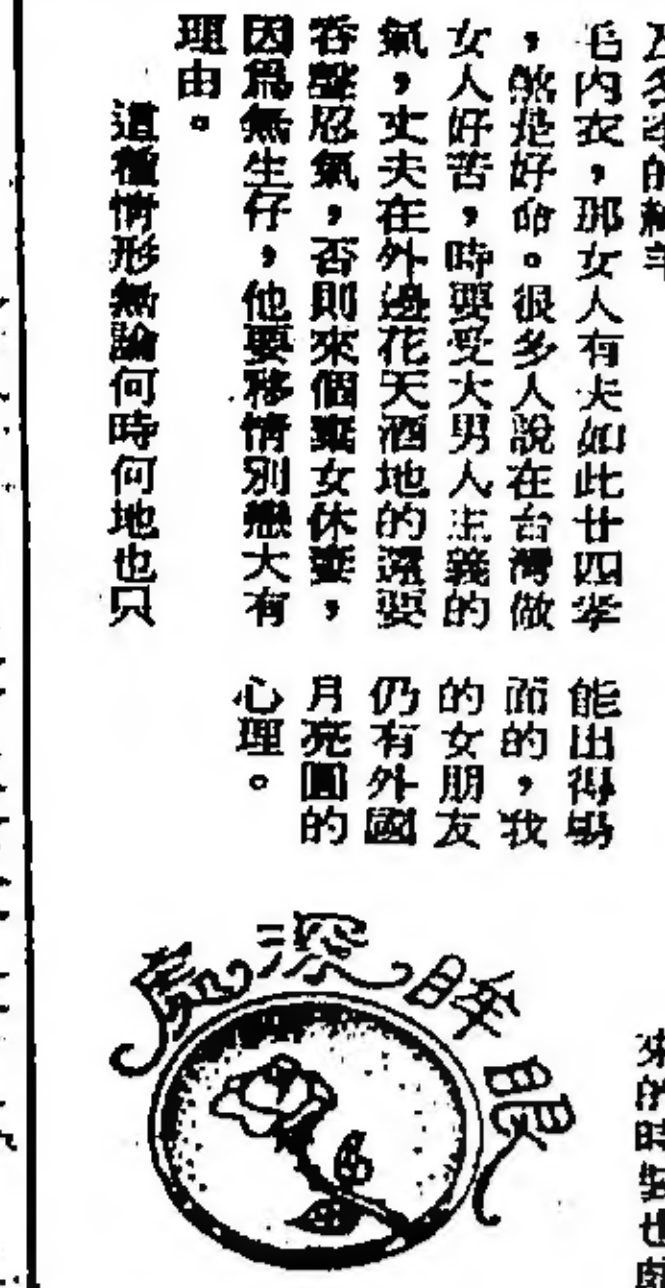 及冬季的純羊
毛內衣,那女人有夫如此廿四孝
,煞是好命。很多人說在台灣做
女人好苦,時要受大男人主義的
氣,丈夫在外邊花天酒地的還要
吞聲忍氣,否則來個棄女休妻,
因爲無生仔,他要移情別戀大有
理由。
這種情形無論何時何地也只
能出得場
面的,我
的女朋友
仍有外國
月亮圓的
心理。
眼眸深處
來的時裝也